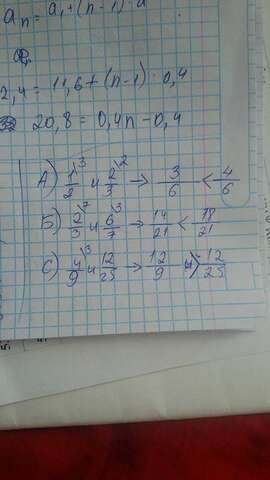 aₙ = a₁+(n-1)·d
2,4 = 11,6+(n-1)·0,4
20,8 = 0,4n-0,4
А) 1/2 \3 и 2/3 \2 → 3/6 < 4/6
Б) 2/3 \7 и 6/7 \3 → 14/21 < 18/21
С) 4/9 \3 и 12/25 → 12/9 > 12/25